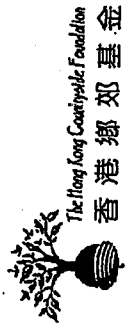 The Hong Kong Countryside Foundation
香港鄉郊基金